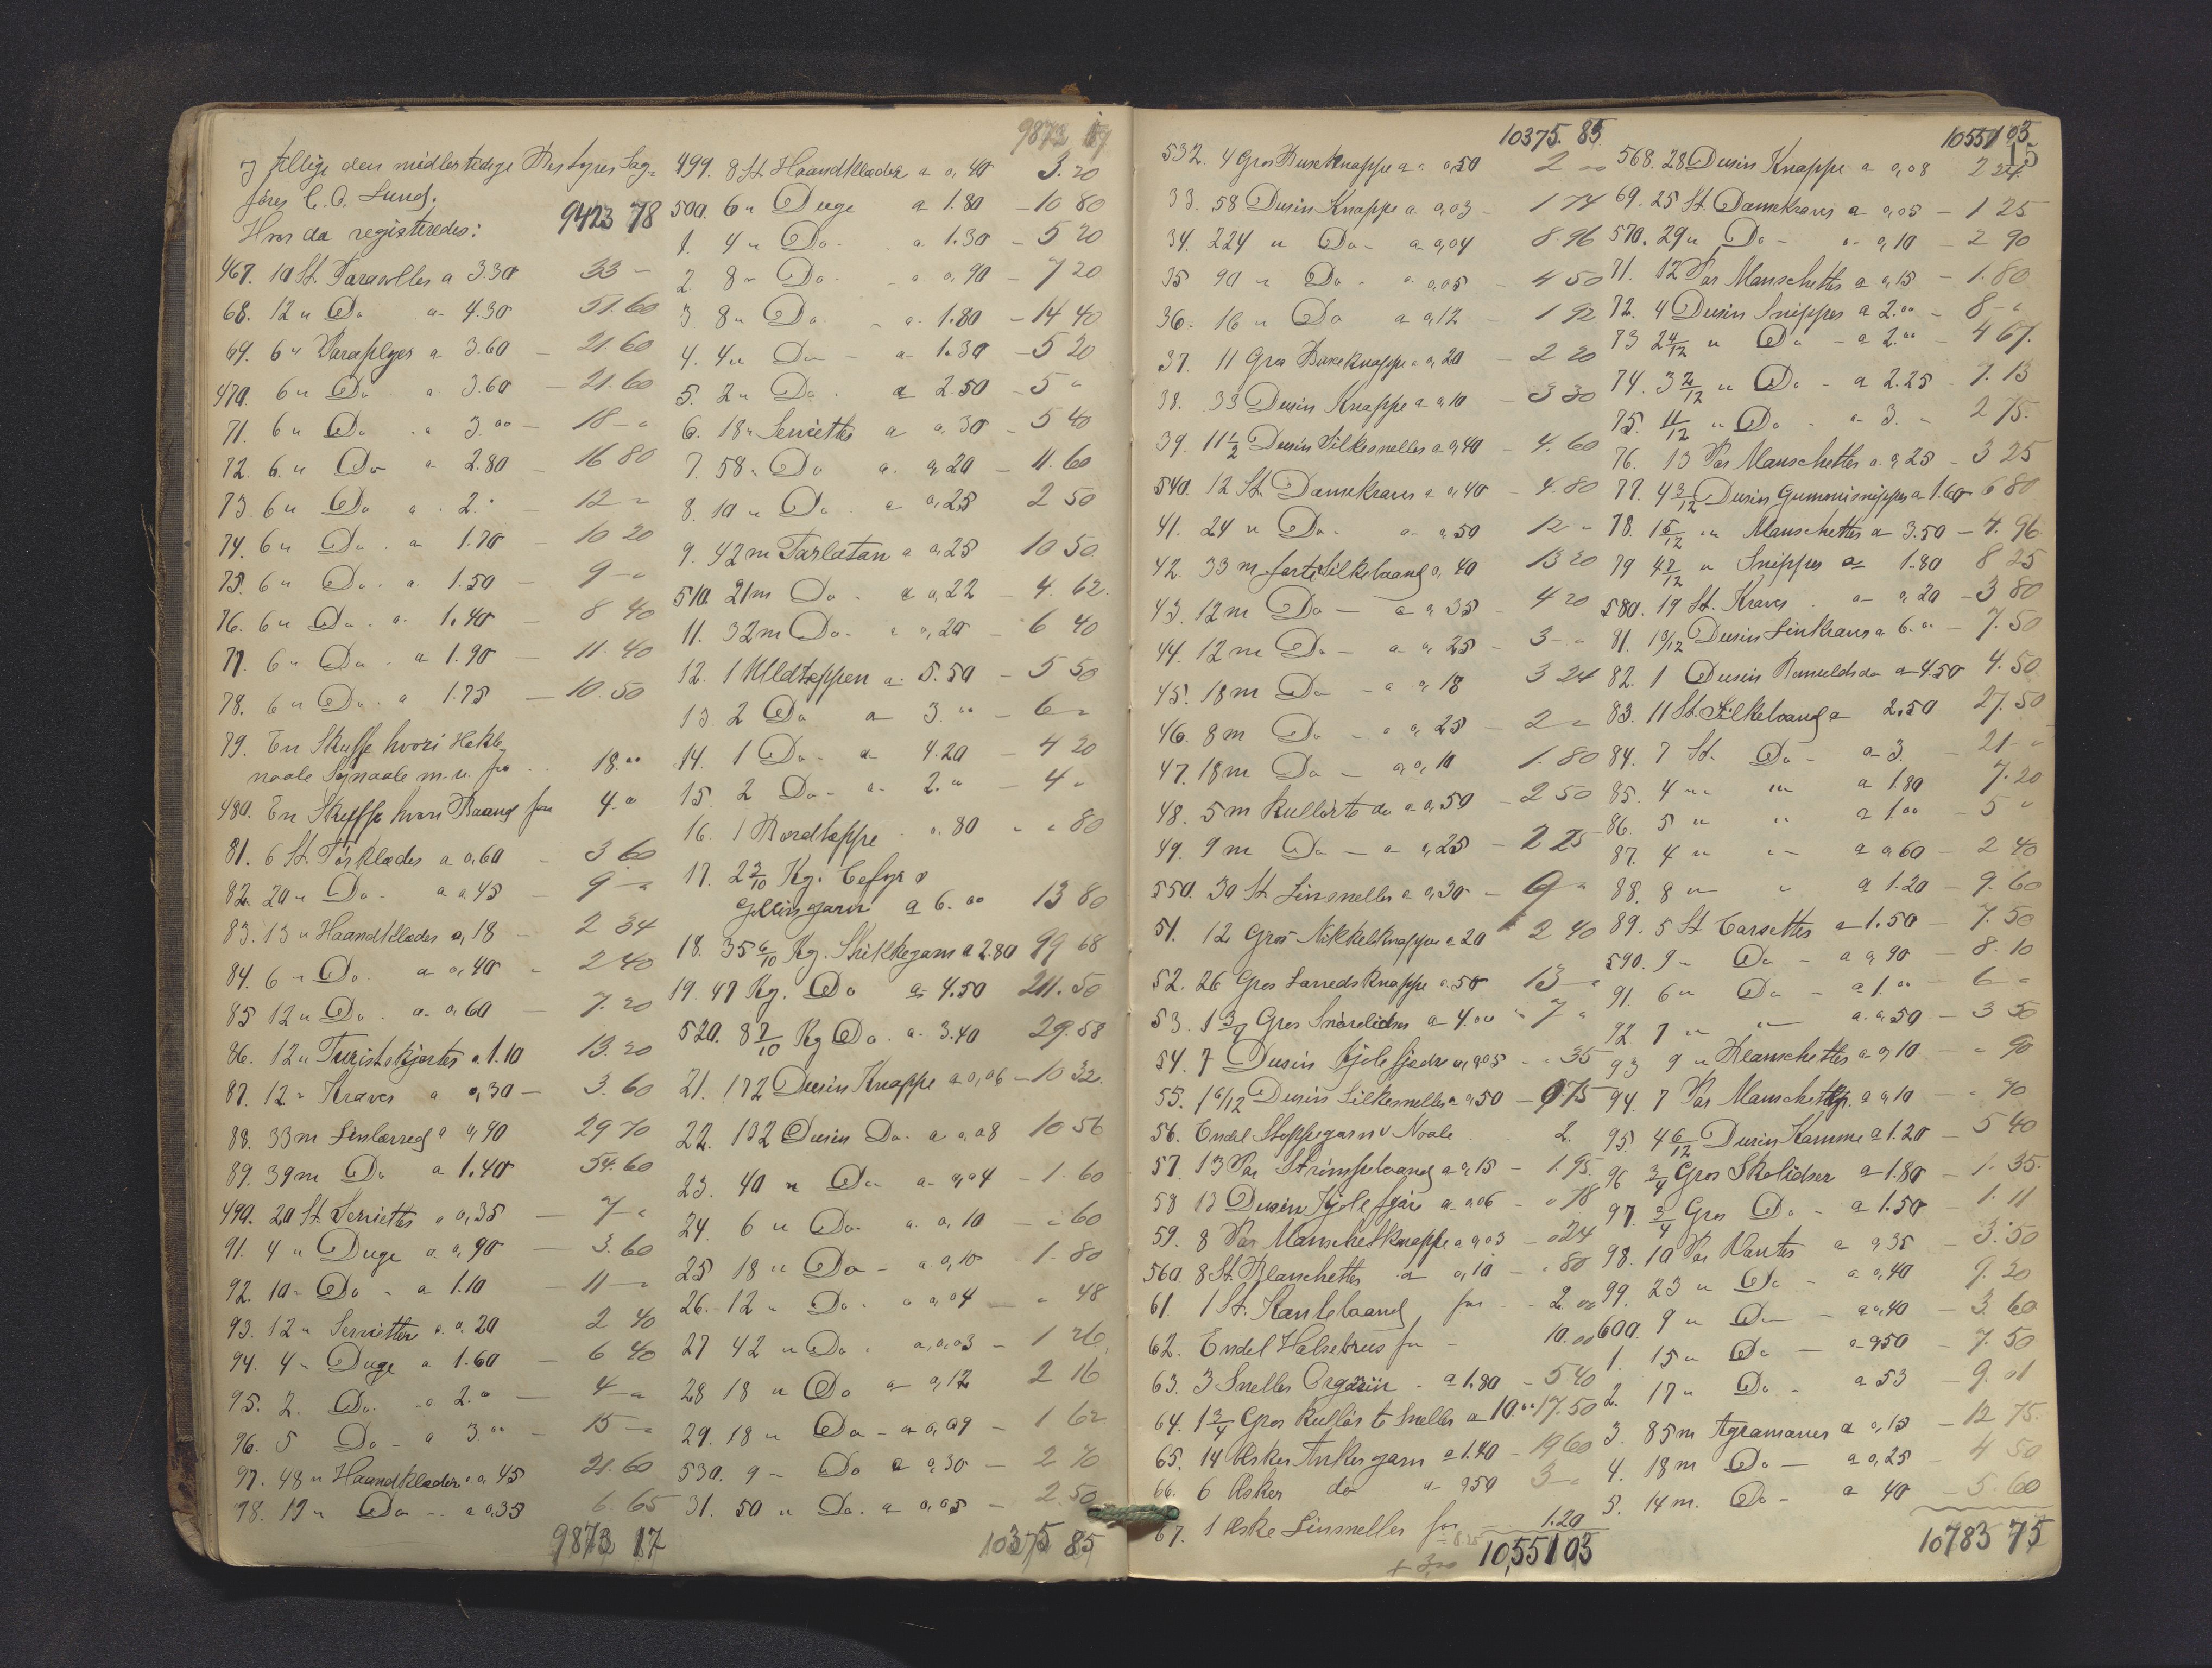 og tillige den midlertidige Bestyrer Sag-
fører C. O. Lund.
Hvor da registreredes: 9423 78
467. 10 St. Parasoller a 3.30 33 –
68. 12 " Do a 4.30 51.60
69. 6 " Paraplyer a 3.60 – 21.60
470. 6 " Do a 3.60 – 21.60
71. 6 " Do a 3.00 – 18 – "
72. 6 " Do a 2.80 – 16 80
73. 6 " Do a 2. – 12 – "
74. 6 " Do a 1.70 – 10 20
75. 6 " Do a 1.50 – 9 – "
76. 6 " Do a 1.40 – 8 40
77. 6 " Do a 1.90 – 11.40
78. 6 " Do a 1.75 – 10.50
79. En Skuffe hvori Hekle-
naale Synaale m.v. for 18.00
480. En Skuffe hvori Baand for 4."
81. 6 St. Törklæder a 0,60 – 3 60
82. 20 " Do a 0,45 – 9 – "
83. 13 " Haandklæder 0,18 – 2 34
84. 6 " Do. a 0,40 " 2 40
85 12 " Do. a 0,60 – 7.20
86. 12 " Turistskjorter a 1.10 13.20
87. 12 " Kraver a 0,30 – 3.60
88. 33 m Linlærred a 0,90 29 70
89. 39 m Do a 1.40 54.60
490. 20 St Servietter a 0,35 – 7 – "
91. 4 " Duge a 0,90 – 3.60
92. 10 " Do a 1.10 – 11 – "
93. 12 " Servietter a 0.20 2 40
94. 4 " Duge a 1.60 – 6 40
95. 2. Do. a 2." – 4 – "
96. 5 Do a 3.00 – 15 – "
97. 48 " Haandklæder a 0,45 21.60
98. 19 " Do a 0,35 6.65
9873 17
9873 17
499. 8 St. Haandklæder a 0,40 3.20
500. 6 " Duge a 1.80 – 10 80
1. 4 " Do. a 1.30 – 5 20
2. 8 " Do. a 0,90 – 7 20
3 8 " Do. a 1.80 – 14 40
4. 4 " Do – a 1.30 – 5 20
5. 2 " Do. a 2.50 – 5 "
6. 18 " Servietter a 0,30 – 5 40
7. 58 " Do a 0,20 – 11.60
8. 10 " Do. a 0,25 2 50
9. 42 m Tarlatan a 0,25 10 50
510. 21 m Do. a 0,22 – 4.62.
11. 32 m Do. a 0,20 – 6 40
12. 1 Uldtæppen a 5.50 – 5 50
13. 2 Do a 3.00 – 6 –
14. 1 Do. a 4.20 – 4 20
15. 2 Do. a 2." – 4 "
16. 1 Bordtæppe . 0.80 " " 80
17. 2 3/10 Kg. Cefyr &
Gobelingarn a 6.00 13 80
18. 35 6/10 Kg. Strikkegarn a 2.80 99 68
19. 47 Kg. Do a 4.50 211.50
520. 8 7/10 Kg Do. a 3.40 29.58
21. 172 Dusin Knappe a 0,06 – 10 32.
22. 132 Dusin Do. a 0,08 10 56
23. 40 " Do a 0,04 – 1.60
24. 6 " Do. a 0,10 – " 60
25 18 " Do – a 0,10 – 1.80
26. 12 " Do. a 0,04 – " 48
27 42 " Do. a 0,03 – 1 26
28 18 " Do a 0,12 2 16
29. 18 " Do – a 0,09 – 1 62
530. 9 – Do a 0,30 – 2 70
31. 50 " Do. a 0,05 – 2.50
10375 85
10375. 85
532. 4 Gros Buxeknappe a 0,50 2 00
33. 58 Dusin Knappe a 0,03 – 1 74
34. 224 " Do – a 0,04 8.96
35 90 " Do a 0,05 – 4 50
36. 16 " Do a 0,12 – 1 92
37. 11 Gros Buxeknappe a 0,20 – 2 20
38. 33 Dusin Knappe a 0,10 – 3 30
39. 11 1/2 Dusin Silkesneller a 0,40 – 4.60
540. 12 St. Damekraver a 0,40 – 4.80
41. 24 " Do. a 0,50 12 "
42. 33 m sort Silkebaand 0,40 13 20
43. 12 m Do – a 0,35 – 4 20
44. 12 m Do – a 0,25 – 3 – "
45. 18 m Do – a 0,18 3 24
46. 8 m Do – a 0,25 – 2 –
47. 18 m Do – a 0,10 1.80
48. 5 m kullört do a 0,50 – 2 50
49. 9 m Do – a 0,25 – 2 25
550. 30 St Linsneller a 0,30 – 9 "
51. 12 Gros Nikkelknappe a 20 2 40
52. 26 Gros Lærredsknappe a 50 13 "
53. 1 3/4 Gros Snörelidser a 4.00 " 7 "
54. 7 Dusin Kjolefjedre a 0,05 – " 35
55. 1 6/12 Dusin Silkesneller a 0,50 – 0 75
56. Endel Stoppegarn & Naale 2.
57. 13 Par Strömpebaand a 0,15 – 1.95.
58 13 Dusin Kjolefjære a 0,06 – 0 78
59. 8 Par Manschetknappe a 0,03 – 0 24
560. 8 St. Blanchetter a 0,10 – " 80
61. 1 St. Kantebaand for – 2.00
62. Endel Halsekrus for – 10.00
63. 3 Sneller Orgazin . a 1.80 – 5.40
64. 1 3/4 Gros kullörte Sneller a 10.00 17.50
65. 14 Æsker Ankergarn a 1.40 – 19 60
66. 6 Æsker do a 0,50 3 – "
67. 1 Æske Linsneller for 1.20
10,551 03
10551 03
15
568. 28 Dusin Knappe a 0,08 2 24.
69. 25 St. Damekraver a 0,05 – 1 25
570. 29 " Do – a 0,10 – 2 90
71. 12 Par Manschetter a 0,15 – 1.80
72. 4 Dusin Snipper a 2.00 – 8 – "
73 2 4/12 " Do – a 2.00 – 4 67.
74. 3 2/12 " Do – a 2.25 – 7.13
75. 11/12 " Do – a 3. – 2 75.
76. 13 Par Manschetter a 0,25 – 3 25
77. 4 3/12 Dusin Gummisnipper a 1.60 6 80
78. 1 5/12 " Manschetter a 3.50 – 4.96
79 4 7/12 " Snipper a 1.80 8 25
580. 19 St. Kraver . a 0,20 – 3 80
81. 1 3/12 Dusin Linkraver a 6.00 – 7.50
82. 1 Dusin Bomuldsdo a 4.50 4.50
83. 11 St. Silkebaand a 2,50 27.50
84. 7 St. Do – a 3. – 21 – "
85. 4 " " a 1.80 7.20
86. 5 " " a 1.00 – 5 "
87. 4 " " a 0,60 – 2 40
88. 8 " " a 1.20 – 9.60
89. 5 St Corsetter a 1.50 – 7.50
590. 9 – Do – a 0,90 – 8.10
91 6 " Do – a 1.00 – 6 – "
92. 7 " " a 0,50 – 3 50
93 9 " Blanschetter a 0,10 – " 90
94. 7 Par Manschetter a 0,10 – " 70
95. 4 6/12 Dusin Kamme a 1.20 – 5 40
96 3/4 Gros Skolidser a 1.80 – 1.35.
97. 3/4 Gros Do – a 1.50 – 1.11
98. 10 Par Vanter a 0,35 – 3.50
99. 23 " Do – a 0,40 9.20
600. 9 " Do – a 0,40 – 3.60
1. 15 " Do – a 0,50 – 7.50
2. 17 " Do – a 53 – 9.01
3. 85 m Agramaner a 0,15 – 12.75.
4. 18 m Do – a 0,25 – 4 50
5. 14 m. Do – a 40 – 5.60
10783 75